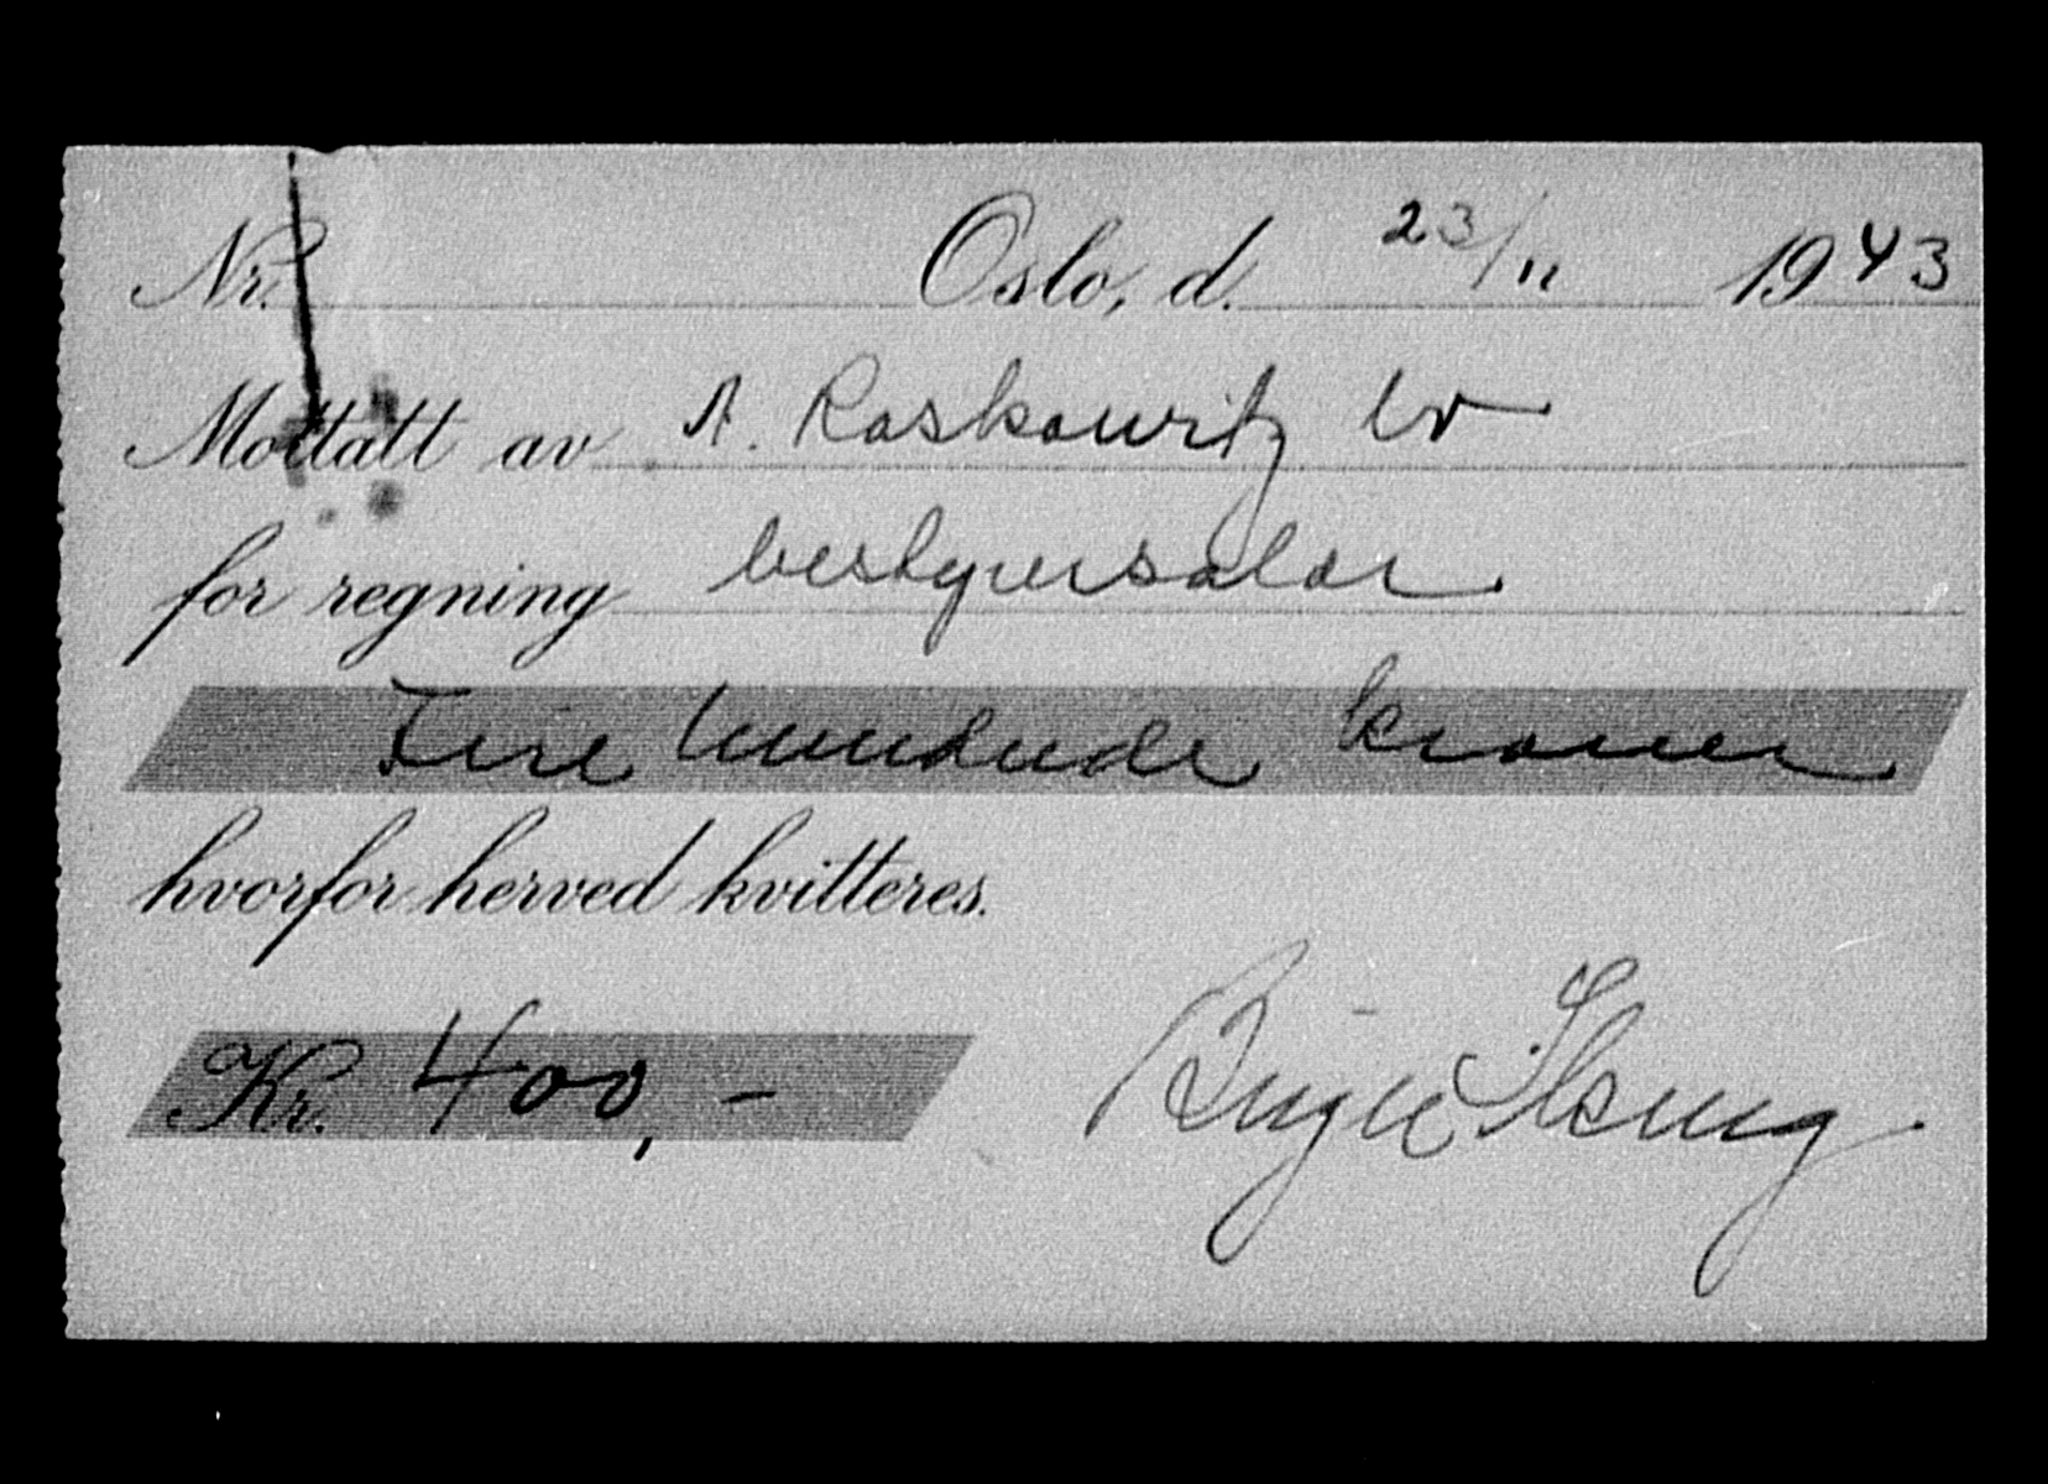 Nr. Oslo, d. 23/11 1943
Mottatt av A. Raskowitz
for regning bestyrersalær
Fire hundrede kroner
hvorfor herved kvitteres.
Kr. 400,-
Birger